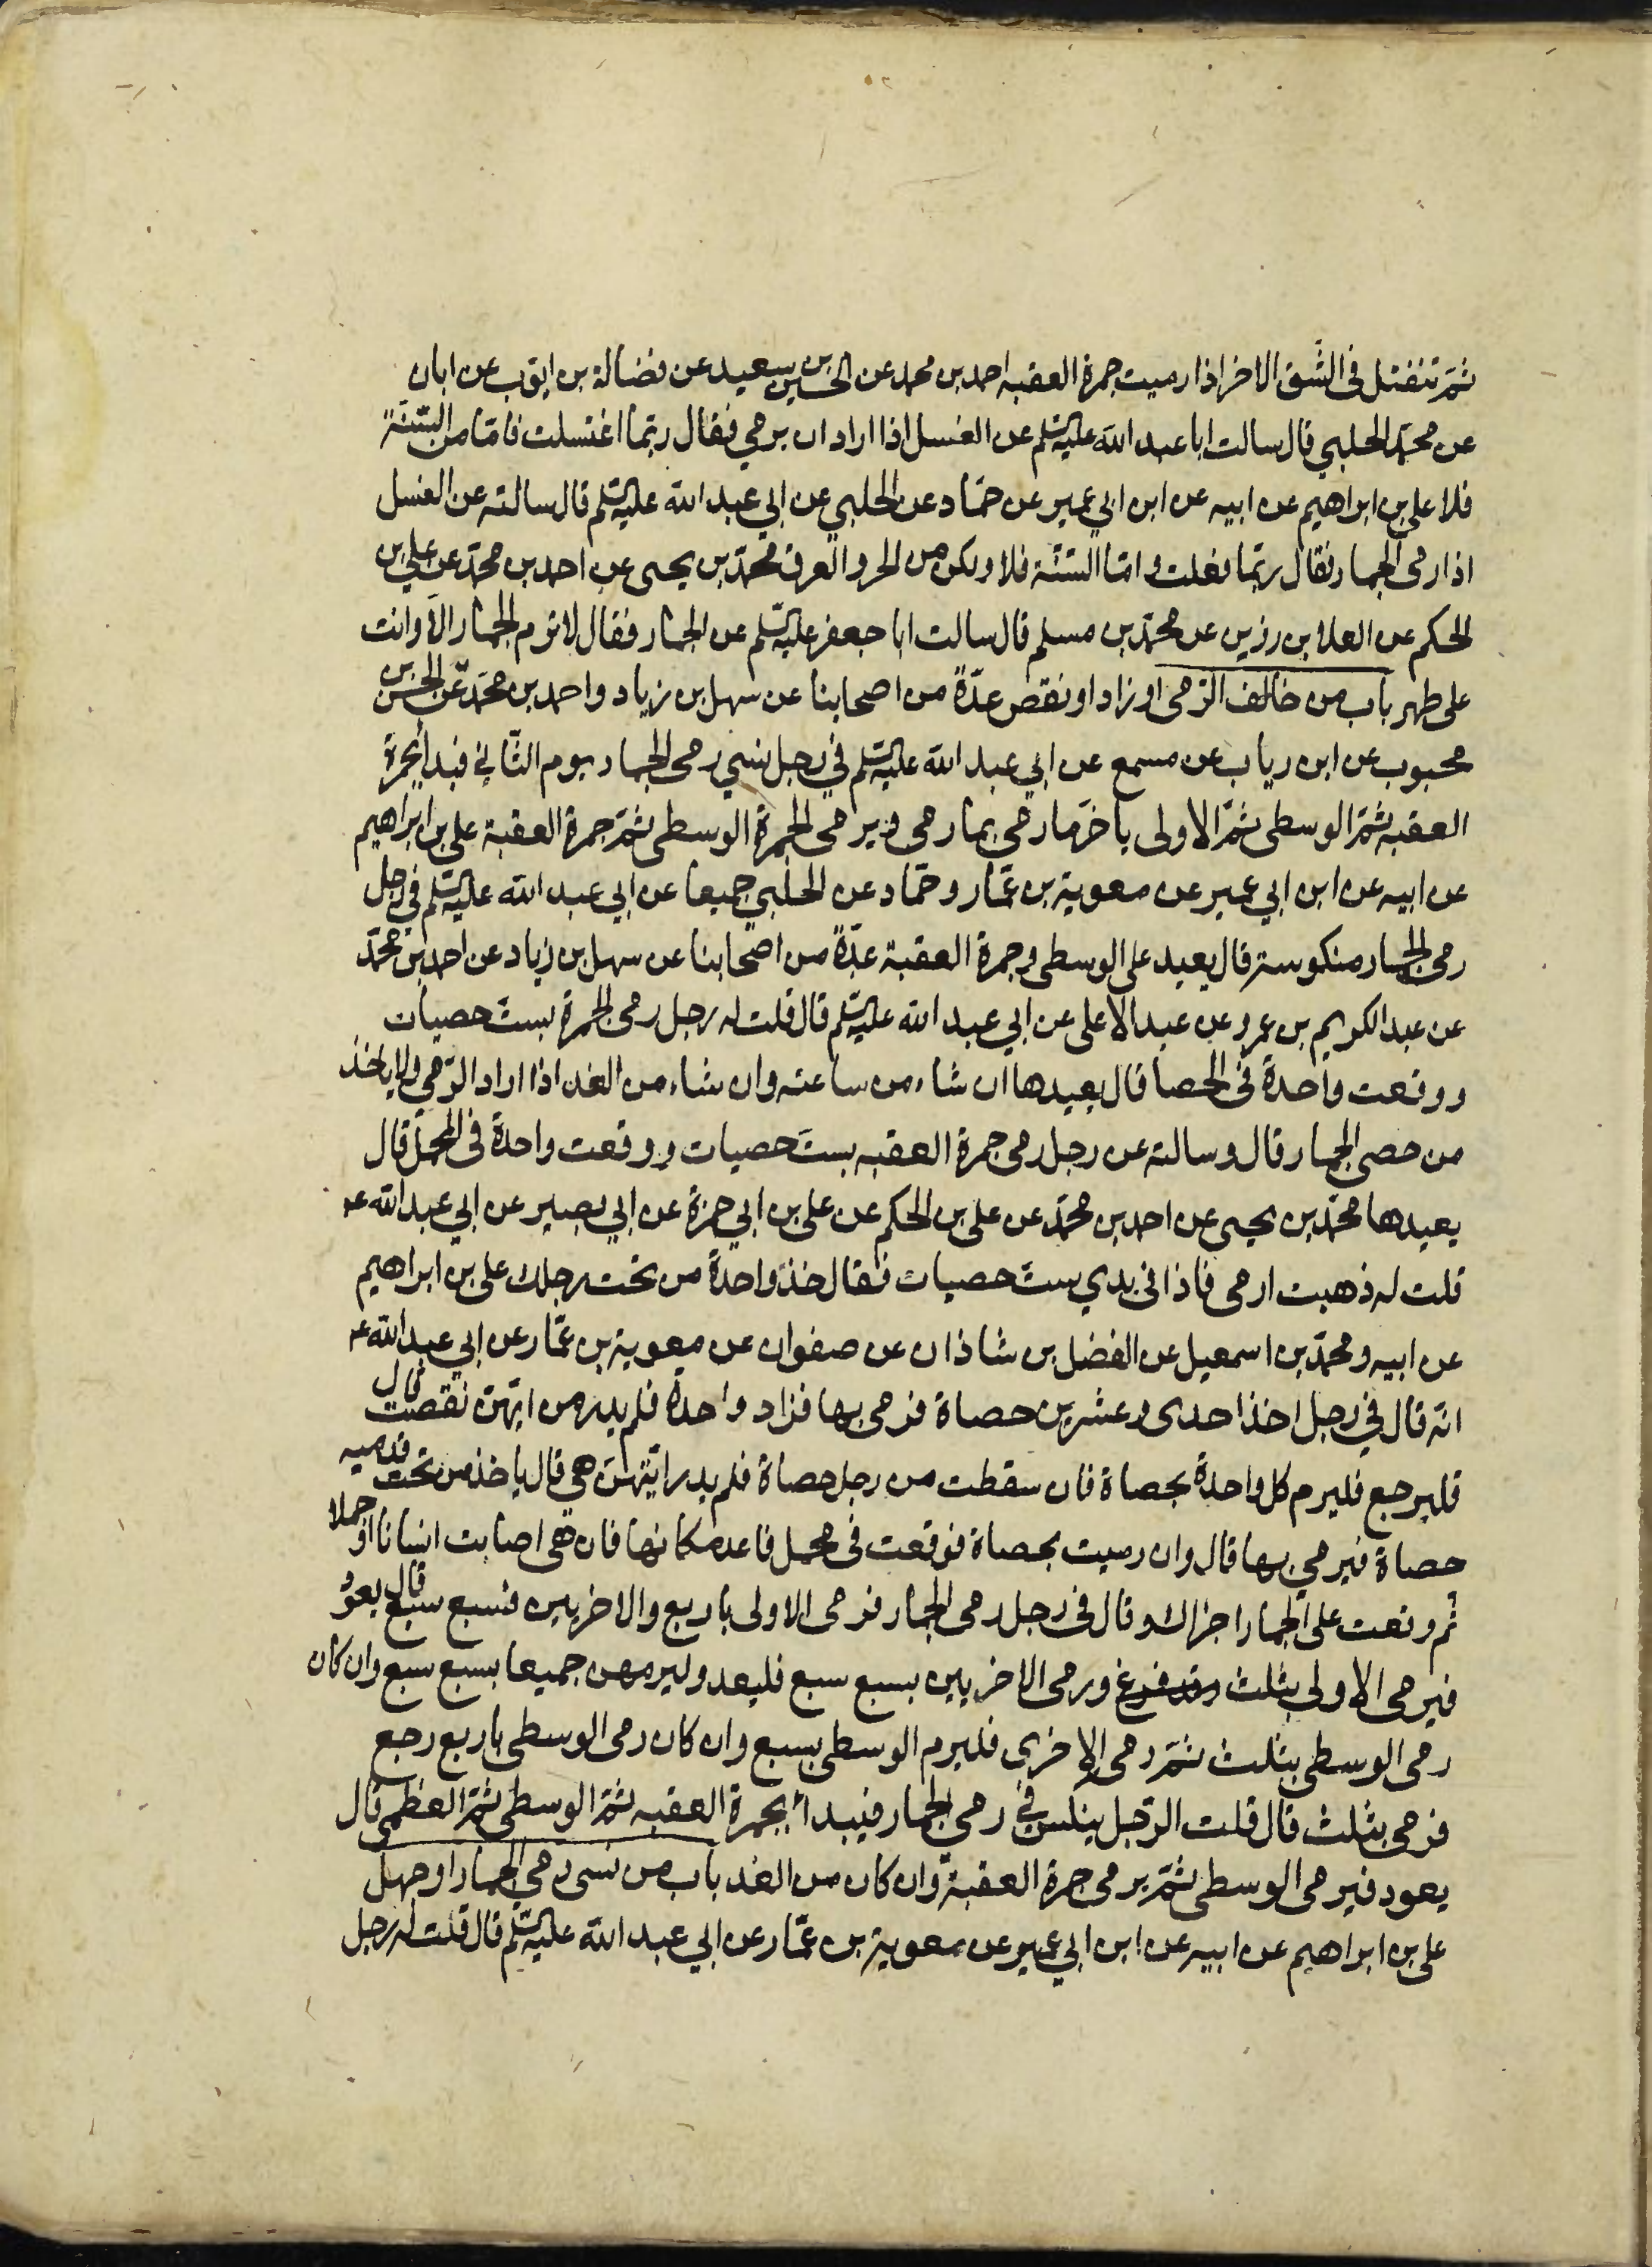 ثمّ تنفتل فى الشّق الاخر اذا رميت جمرة العقبه احمد بن محمد عن الحسين بن سعيد عن فضالة بن ايوّب عن ابان
عن محمّد الحلبي قال سالت ابا عبد الله عليه السّلم عن الغسل اذا اراد ان يرمي فقال ربّما اغتسلت فامّا من السّنّة
فلا على بن ابراهيم عن ابيه عن ابن ابي عمير عن حمّاد عن الحلبي عن ابي عبد الله عليه السّلم قال سالته عن الغسل
اذا رمى الجمار فقال ربّما فعلت و امّا السّنّة فلا ولكن من الحر والعرق محمّد بن يحيى عن احمد بن محمّد عن علي بن
الحكم عن العلا بن رزين عن محمّد بن مسلم قال سالت ابا جعفر عليه السّلم عن الجمار فقال لا ترم الجمار الّا وانت
على طهر باب من خالف الرّمى او زاد او نقص عدّة من اصحابنا عن سهل بن زياد واحمد بن محمّد عن الحسن بن
محبوب عن ابن رياب عن مسمع عن ابي عبد الله عليه السّلم في رجل نسي رمى الجمار يوم الثّاني فبدأ بجمرة
العقبه ثمّ الوسطى ثمّ الاولى ياخرّ ما رمي بما رمي ويرمى الجمرة الوسطى ثمّ جمرة العقبة على بن ابراهيم
عن ابيه عن ابن ابي عمير عن معوية بن عمّار وحمّاد عن الحلبي جميعا عن ابي عبد الله عليه السّلم في رجل
رمى الجمار منكوسة قال يعيد على الوسطى وجمرة العقبة عدّة من اصحابنا عن سهل بن زياد عن احمد بن محمّد
عن عبد الكريم بن عمرو عن عبد الاعلى عن ابي عبد الله عليه السّلم قال قلت له رجل رمى الجمرة بستّ حصيات
ووقعت واحدة فى الحصا قال يعيدها ان شاء من ساعته وان شاء من الغد اذا اراد الرّمي ولا ياخذ
من حصى الجمار قال وسالته عن رجل رمى جمرة العقبه بستّ حصيات ووقعت واحدة فى المحمل قال
يعيدها محمّد بن يحيى عن احمد بن محمّد عن على بن الحكم عن على بن ابي حمزة عن ابي بصير عن ابي عبد الله ع
قلت له ذهبت ارمى فاذا فى يدي ستّ حصيات فقال خذ واحدة من تحت رجلك على بن ابراهيم
عن ابيه ومحمّد بن اسمعيل عن الفضل بن شاذان عن صفوان عن معوية بن عمّار عن ابي عبد الله ع
انه قال في رجل اخذ احدى وعشرين حصاة فرمى بها فزاد واحدة فلم يدر من ايّتهنّ نقصت قال
فليرجع فليرم كل واحدة بحصاة فان سقطت من رجل حصاة فلم يدر ايّتهنّ هي قال ياخذ من تحت قدميه
حصاة فيرمي بها قال وان رميت بحصاة فوقعت فى محمل فاعد مكانها فان هى اصابت انسانا او جملا
ثم وقعت على الجمار اجزاك وقال فى رجل رمى الجمار فرمى الاولى باربع والاخريين فسبع سبع قال يعود
فيرمى الاولى بثلث وقد فرغ ورمى الاخريين بسبع سبع فليعد وليرمهن جميعا بسبع سبع وان كان
رمى الوسطى بثلث ثمّ رمى الاخرى فليرم الوسطى بسبع وان كان رمى الوسطى باربع رجع
فرمى بثلث قال قلت الرّجل ينكس فى رمي الجمار فيبدا بجمرة العقبه ثمّ الوسطى ثمّ العظمى قال
يعود فيرمى الوسطى ثمّ يرمى جمرة العقبة وان كان من الغد باب من نسى رمي الجمار او جهل
على بن ابراهيم عن ابيه عن ابن ابي عمير عن معوية بن عمّار عن ابي عبد الله عليه السّلم قال قلت له رجل